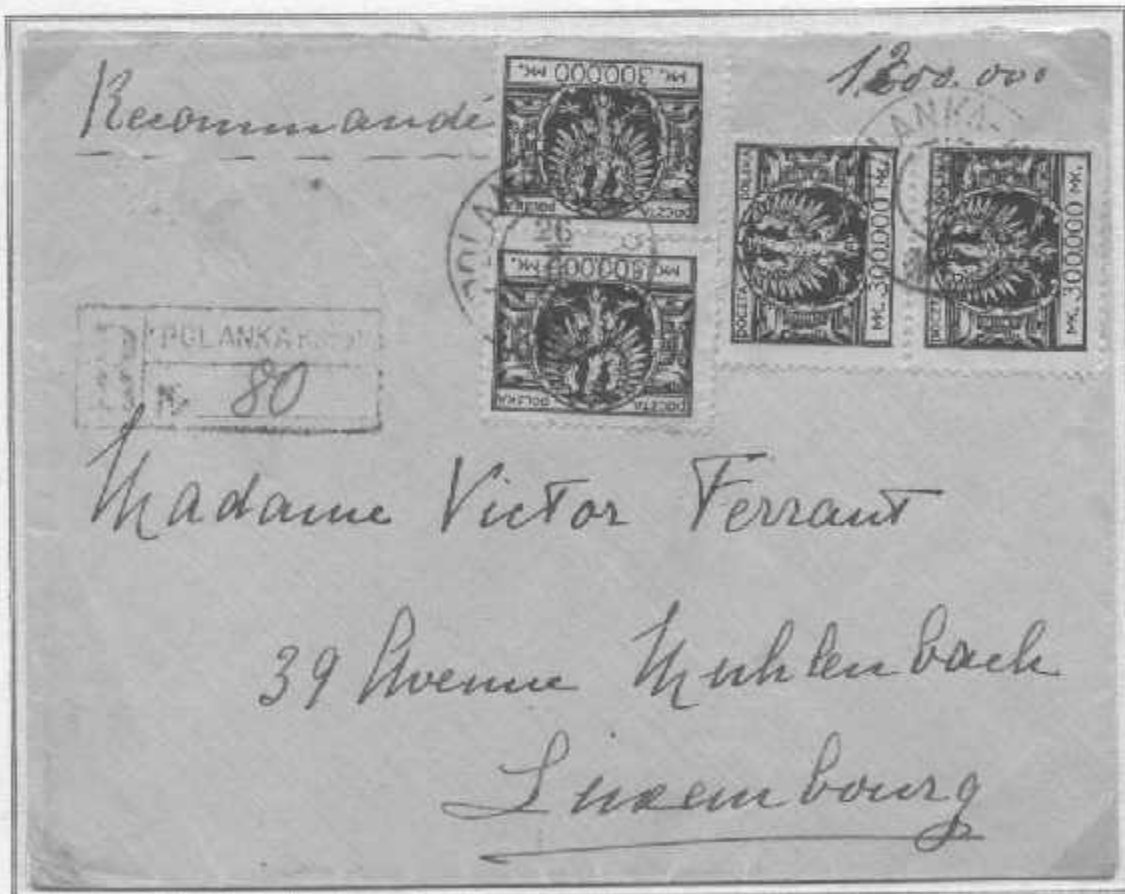 Recommandé
1200.000
MK. 300.000 MK.
POCZTA POLSKA
MK. 300.000 MK.
POCZTA POLSKA
POCZTA POLSKA
MK. 300.000 MK.
POCZTA POLSKA
MK. 300.000 MK.
26
POLANKA
Nr. 80
Madame Victor Ferrant
39 Avenue Muhlenbach
Luxembourg